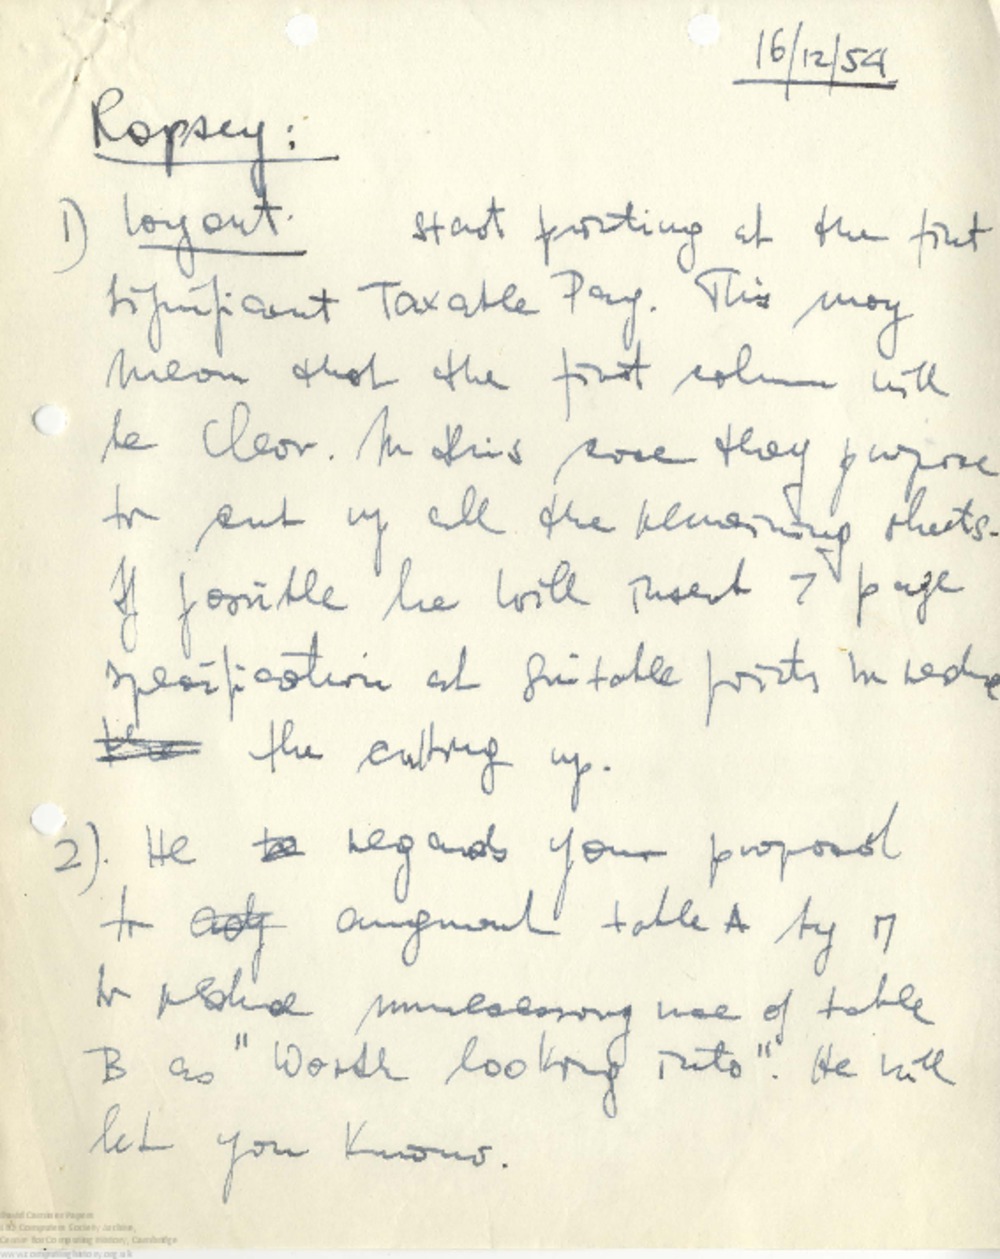 16/12/54
Ropsey:
1) Layout. Start printing at the first
significant Taxable Pay. This may
mean that the first column will
be clear. In this case they propose
to cut up all the remaining sheets.
If possible he will insert 7 page
specification at suitable points to reduce
the cutting up.
2). He regards your proposal
to augment table A by
to reduce unnecessary use of table
B as "Worth looking into". He will
let you know.
David Caminer Papers
LEO Computers Society Archive,
Centre for Computing History, Cambridge
www.computinghistory.org.uk